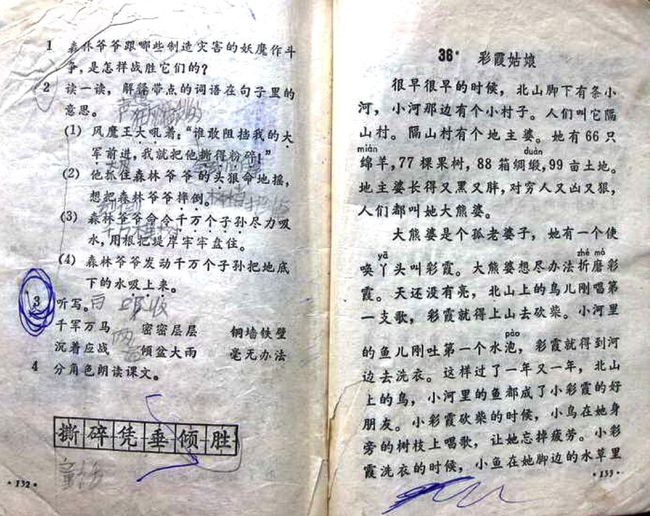 1 森林爷爷跟哪些制造灾害的妖魔作斗
争,是怎样战胜它们的?
2 读一读,解释带点的词语在句子里的
意思。
(1) 风魔王大吼着:“谁敢阻挡我的大
军前进,我就把他撕得粉碎!”
(2) 他抓住森林爷爷的头狠命地摇,
想把森林爷爷摔倒。
(3) 森林爷爷命令千万个子孙尽力吸
水,用根把堤岸牢牢盘住。
(4) 森林爷爷发动千万个子孙把地底
下的水吸上来。
3 听写。
吸收
千军万马 密密层层 铜墙铁壁
沉着应战 倾盆大雨 毫无办法
4 分角色朗读课文。
撕碎凭垂倾胜
·132·
36* 彩霞姑娘
很早很早的时候,北山脚下有条小
河,小河那边有个小村子。人们叫它隔
山村。隔山村有个地主婆。她有66只
mián duàn
绵羊,77棵果树,88箱绸缎,99亩土地。
地主婆长得又黑又胖,对穷人又凶又狠,
人们都叫她大熊婆。
大熊婆是个孤老婆子,她有一个使
yā zhé mó
唤丫头叫彩霞。大熊婆想尽办法折磨彩
霞。天还没有亮,北山上的鸟儿刚唱第
一支歌,彩霞就得上山去砍柴。小河里
pào
的鱼儿刚吐第一个水泡,彩霞就得到河
边去洗衣。这样过了一年又一年,北山
上的鸟,小河里的鱼都成了小彩霞的好
朋友。小彩霞砍柴的时候,小鸟在她身
旁的树枝上唱歌,让她忘掉疲劳。小彩
霞洗衣的时候,小鱼在她脚边的水草里
·133·